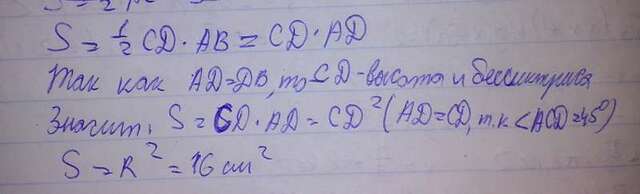 S = 1/2 CD · AB = CD · AD
Так как AD=DB, то CD - высота и биссектриса
Значит, S = CD · AD = CD² (AD=CD, т.к <ACD=45°)
S = R² = 16 см²